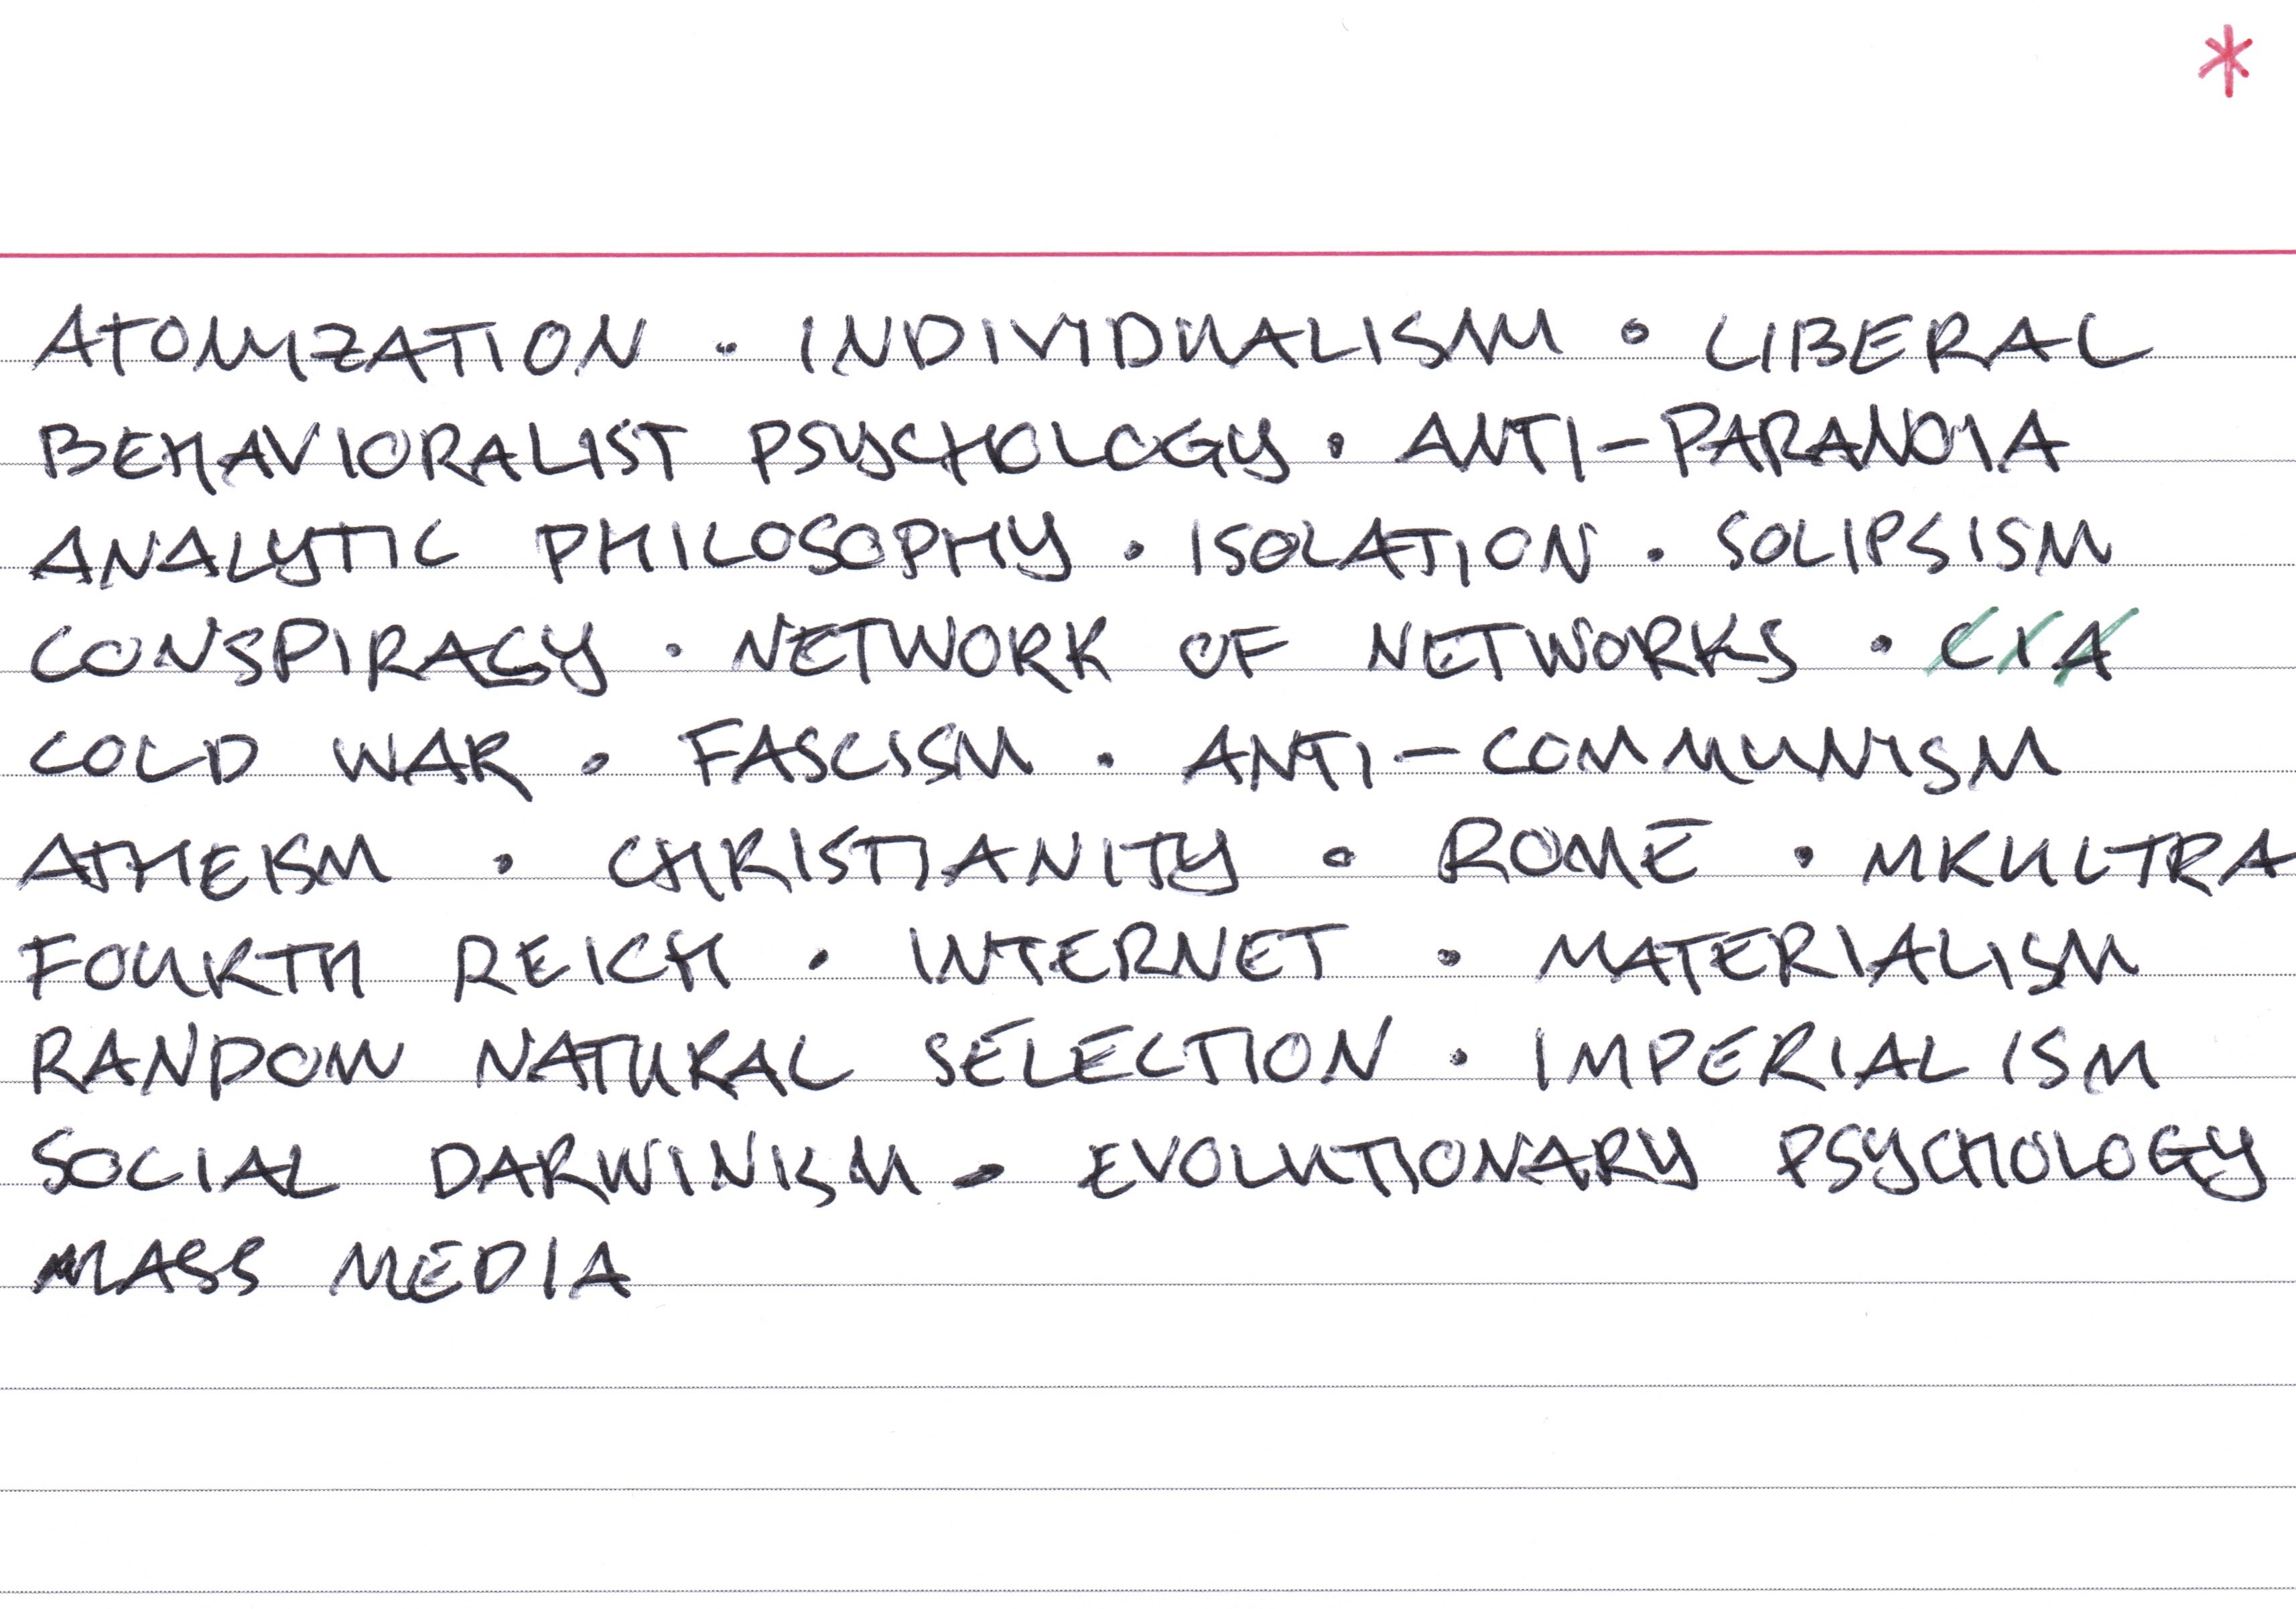 *
ATOMIZATION • INDIVIDUALISM • LIBERAL
BEHAVIORALIST PSYCHOLOGY • ANTI-PARANOIA
ANALYTIC PHILOSOPHY • ISOLATION • SOLIPSISM
CONSPIRACY • NETWORK OF NETWORKS • CIA
COLD WAR • FASCISM • ANTI-COMMUNISM
ATHEISM • CHRISTIANITY • ROME • MKULTRA
FOURTH REICH • INTERNET • MATERIALISM
RANDOM NATURAL SELECTION • IMPERIALISM
SOCIAL DARWINISM • EVOLUTIONARY PSYCHOLOGY
MASS MEDIA